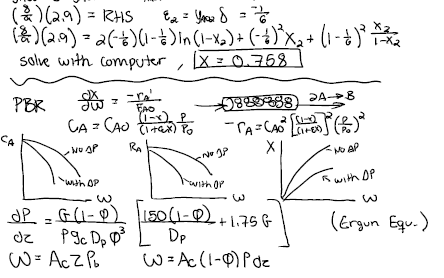 (8/α)(2.9) = RHS   ε₂ = y_A2 δ = -1/6
(8/α)(2.9) = 2(-1/6)(1-1/6)ln(1-X₂) + (-1/6)² X₂ + (1-1/6)² X₂/(1-X₂)
solve with computer, X = 0.758
PBR   dX/dW = -r_A'/F_A0   2A → B
C_A = C_A0 (1-X)/(1+εX) P/P₀   -r_A = C_A0² [(1-X)/(1+εX)]² (P/P₀)²
C_A   NO ΔP   with ΔP   W
R_A   NO ΔP   with ΔP   W
X   NO ΔP   with ΔP   W
dP/dz = G(1-Φ)/(ρ g_c D_p Φ³) [150(1-Φ)/D_p + 1.75 G]   (Ergun Equ.)
W = A_c Z ρ_b   W = A_c (1-Φ) ρ dz